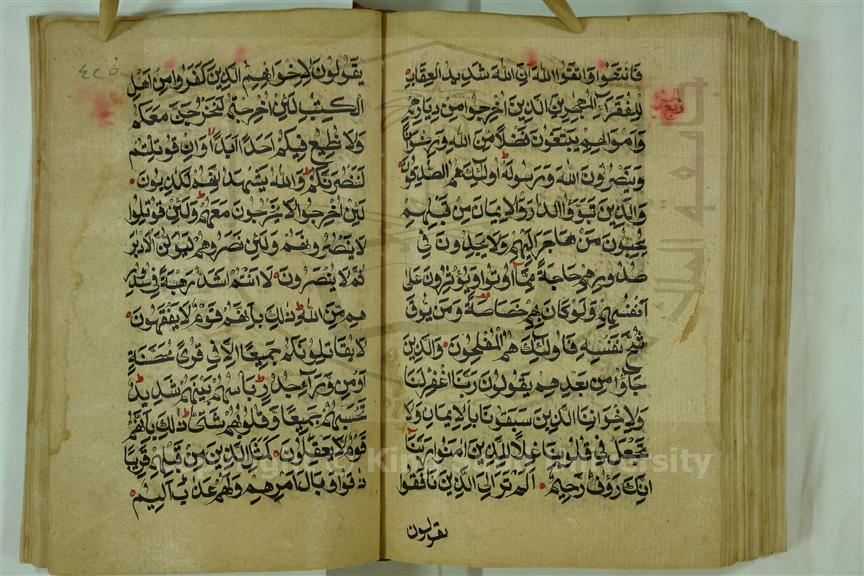 فانتهوا واتقوا الله ان الله شديد العقاب
للفقرآء المهجرين الذين اخرجوا من ديارهم
واموالهم يبتغون فضلا من الله ورضوانا
وينصرون الله ورسوله اولئك هم الصدقون
والذين تبوؤا الدار والايمان من قبلهم
يحبون من هاجر اليهم ولا يجدون في
صدورهم حاجة مما اوتوا ويؤثرون على
انفسهم ولو كان بهم خصاصة ومن يوق
شح نفسه فاولئك هم المفلحون والذين
جاؤا من بعدهم يقولون ربنا اغفر لنا
ولاخواننا الذين سبقونا بالايمان ولا
تجعل في قلوبنا غلا للذين امنوا ربنا
انك رؤف رحيم الم تر الى الذين نافقوا
يقولون
٤٢٥
يقولون لاخوانهم الذين كفروا من اهل
الكتب لئن اخرجتم لنخرجن معكم
ولا نطيع فيكم احدا ابدا وان قوتلتم
لننصرنكم والله يشهد انهم لكذبون
لئن اخرجوا لا يخرجون معهم ولئن قوتلوا
لا ينصرونهم ولئن نصروهم ليولن الادبر
ثم لا ينصرون لا انتم اشد رهبة في صدور
هم من الله ذلك بانهم قوم لا يفقهون
لا يقاتلونكم جميعا الا في قرى محصنة
او من ورآء جدر باسهم بينهم شديد
تحسبهم جميعا وقلوبهم شتى ذلك بانهم
قوم لا يعقلون كمثل الذين من قبلهم قريبا
ذاقوا وبال امرهم ولهم عذاب اليم
Copyright © King Saud University
جامعة الملك